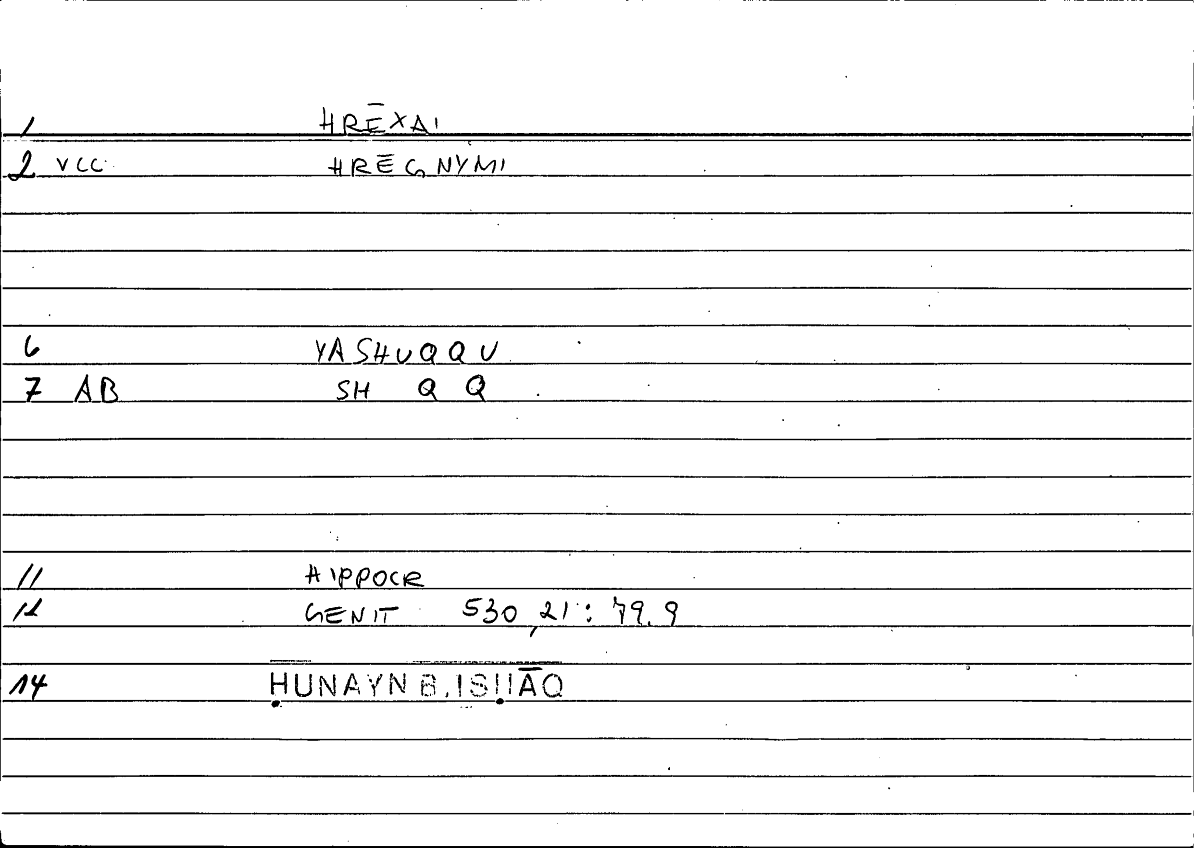 1 HRĒXAI
2 VCC HRĒGNYMI
6 YASHUQQU
7 AB SH Q Q
11 HIPPOCR
12 GENIT 530,21: 79.9
14 ḤUNAYN B. ISḤĀQ